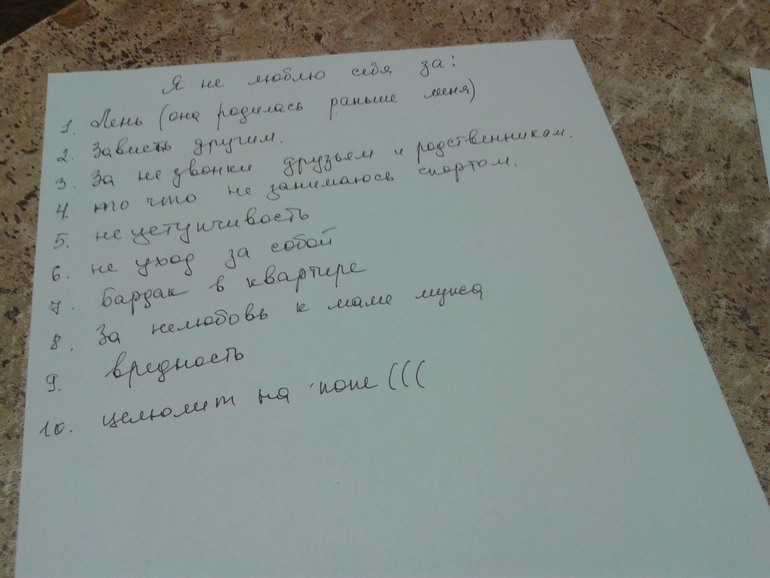 Я не люблю себя за:
1. Лень (она родилась раньше меня)
2. Зависть другим.
3. За не звонки друзьям и родственником.
4. то что не занимаюсь спортом.
5. не уступчивость
6. не уход за собой
7. Бардак в квартире
8. За нелюбовь к маме мужа
9. вредность
10. целюлит на попе (((